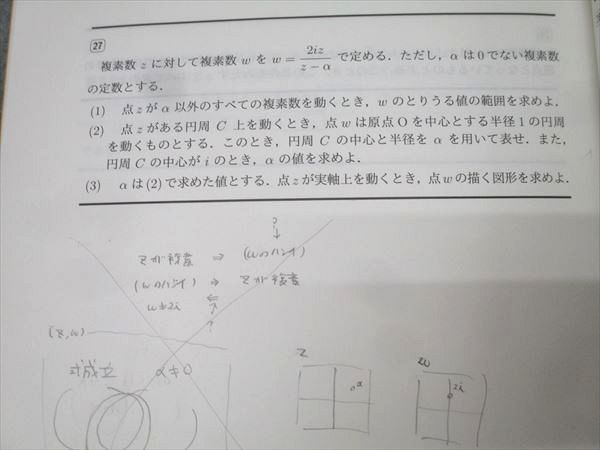 27
複素数 z に対して複素数 w を w = 2iz/(z − α) で定める．ただし，α は0でない複素数
の定数とする．
(1) 点 z が α 以外のすべての複素数を動くとき，w のとりうる値の範囲を求めよ．
(2) 点 z がある円周 C 上を動くとき，点 w は原点 O を中心とする半径 1 の円周
を動くものとする．このとき，円周 C の中心と半径を α を用いて表せ．また，
円周 C の中心が i のとき，α の値を求めよ．
(3) α は (2) で求めた値とする．点 z が実軸上を動くとき，点 w の描く図形を求めよ．
?
↓
zが複素 ⇒ (wのハンイ)
(wのハンイ) ⇒ zが複素
w≠2i ⇐
?
(z, w)
式成立 α≠0
z w
α 2i